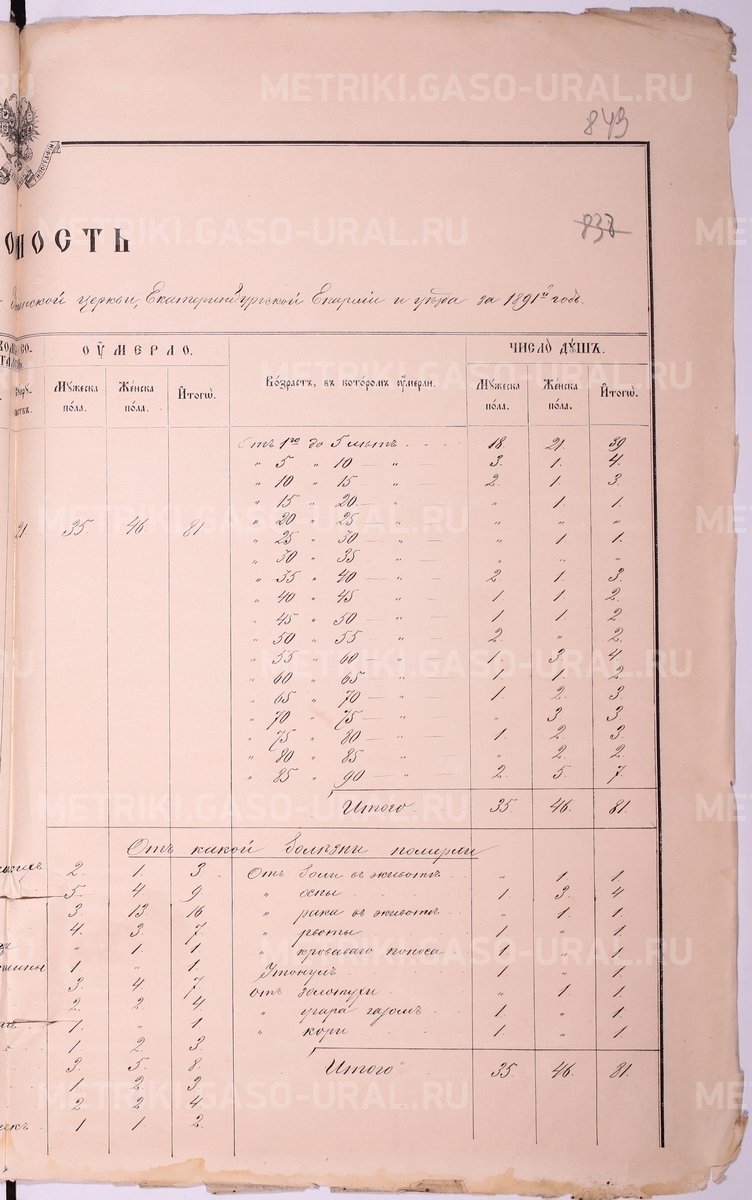 843
838
ОМОСТЬ
церкви, Екатеринбургской Епархіи и уѣзда за 1891й годъ.
ОУМЕРЛО. ЧИСЛО ДУШЪ.
Мужеска пола. Женска пола. Итогѡ. Возрастъ, въ которомъ оумерли. Мужеска пола. Женска пола. Итогѡ.
Отъ 1го до 5 лѣтъ 18 21. 39
" 5 " 10 — " 3. 1. 4.
" 10 " 15 " 2. 1. 3.
" 15 " 20 " " 1. 1.
21. 35. 46. 81. " 20 " 25 — " " " "
" 25 " 30 — " " 1. 1.
" 30 " 35 " " " "
" 35 " 40 — " 2. 1. 3.
" 40 " 45 " 1. 1. 2.
" 45 " 50 — " 1 1 2.
" 50 " 55 " 2. " 2.
" 55 " 60 " 1. 3. 4.
" 60 " 65 " 1. 1. 2
" 65 " 70 — " 1. 2. 3
" 70 " 75 — " " 3. 3.
" 75 " 80 — " 1. 2. 3.
" 80 " 85 — " " 2. 2
" 85 " 90 — " 2. 5. 7.
Итого 35. 46. 81.
Отъ какой болѣзни померли
2. 1. 3. Отъ боли въ животѣ " 1 1.
5. 4 9 " оспы 1 3. 4
3. 13. 16 " рака въ животѣ " 1. 1.
4. 3. 7. " рвоты 1. " 1.
" 1. 1. " кроваваго поноса 1 " 1.
1. " 1. Утонулъ 1 " 1.
3. 4. 7. отъ золотухи " 1 1.
2. 2. 4 " угара газомъ 1. " 1.
1. " 1 " кори 1 " 1.
1. 2. 3.
3. 5. 8. Итого 35. 46. 81.
1. 2 3.
2. 2 4.
1 1 2.
METRIKI.GASO-URAL.RU